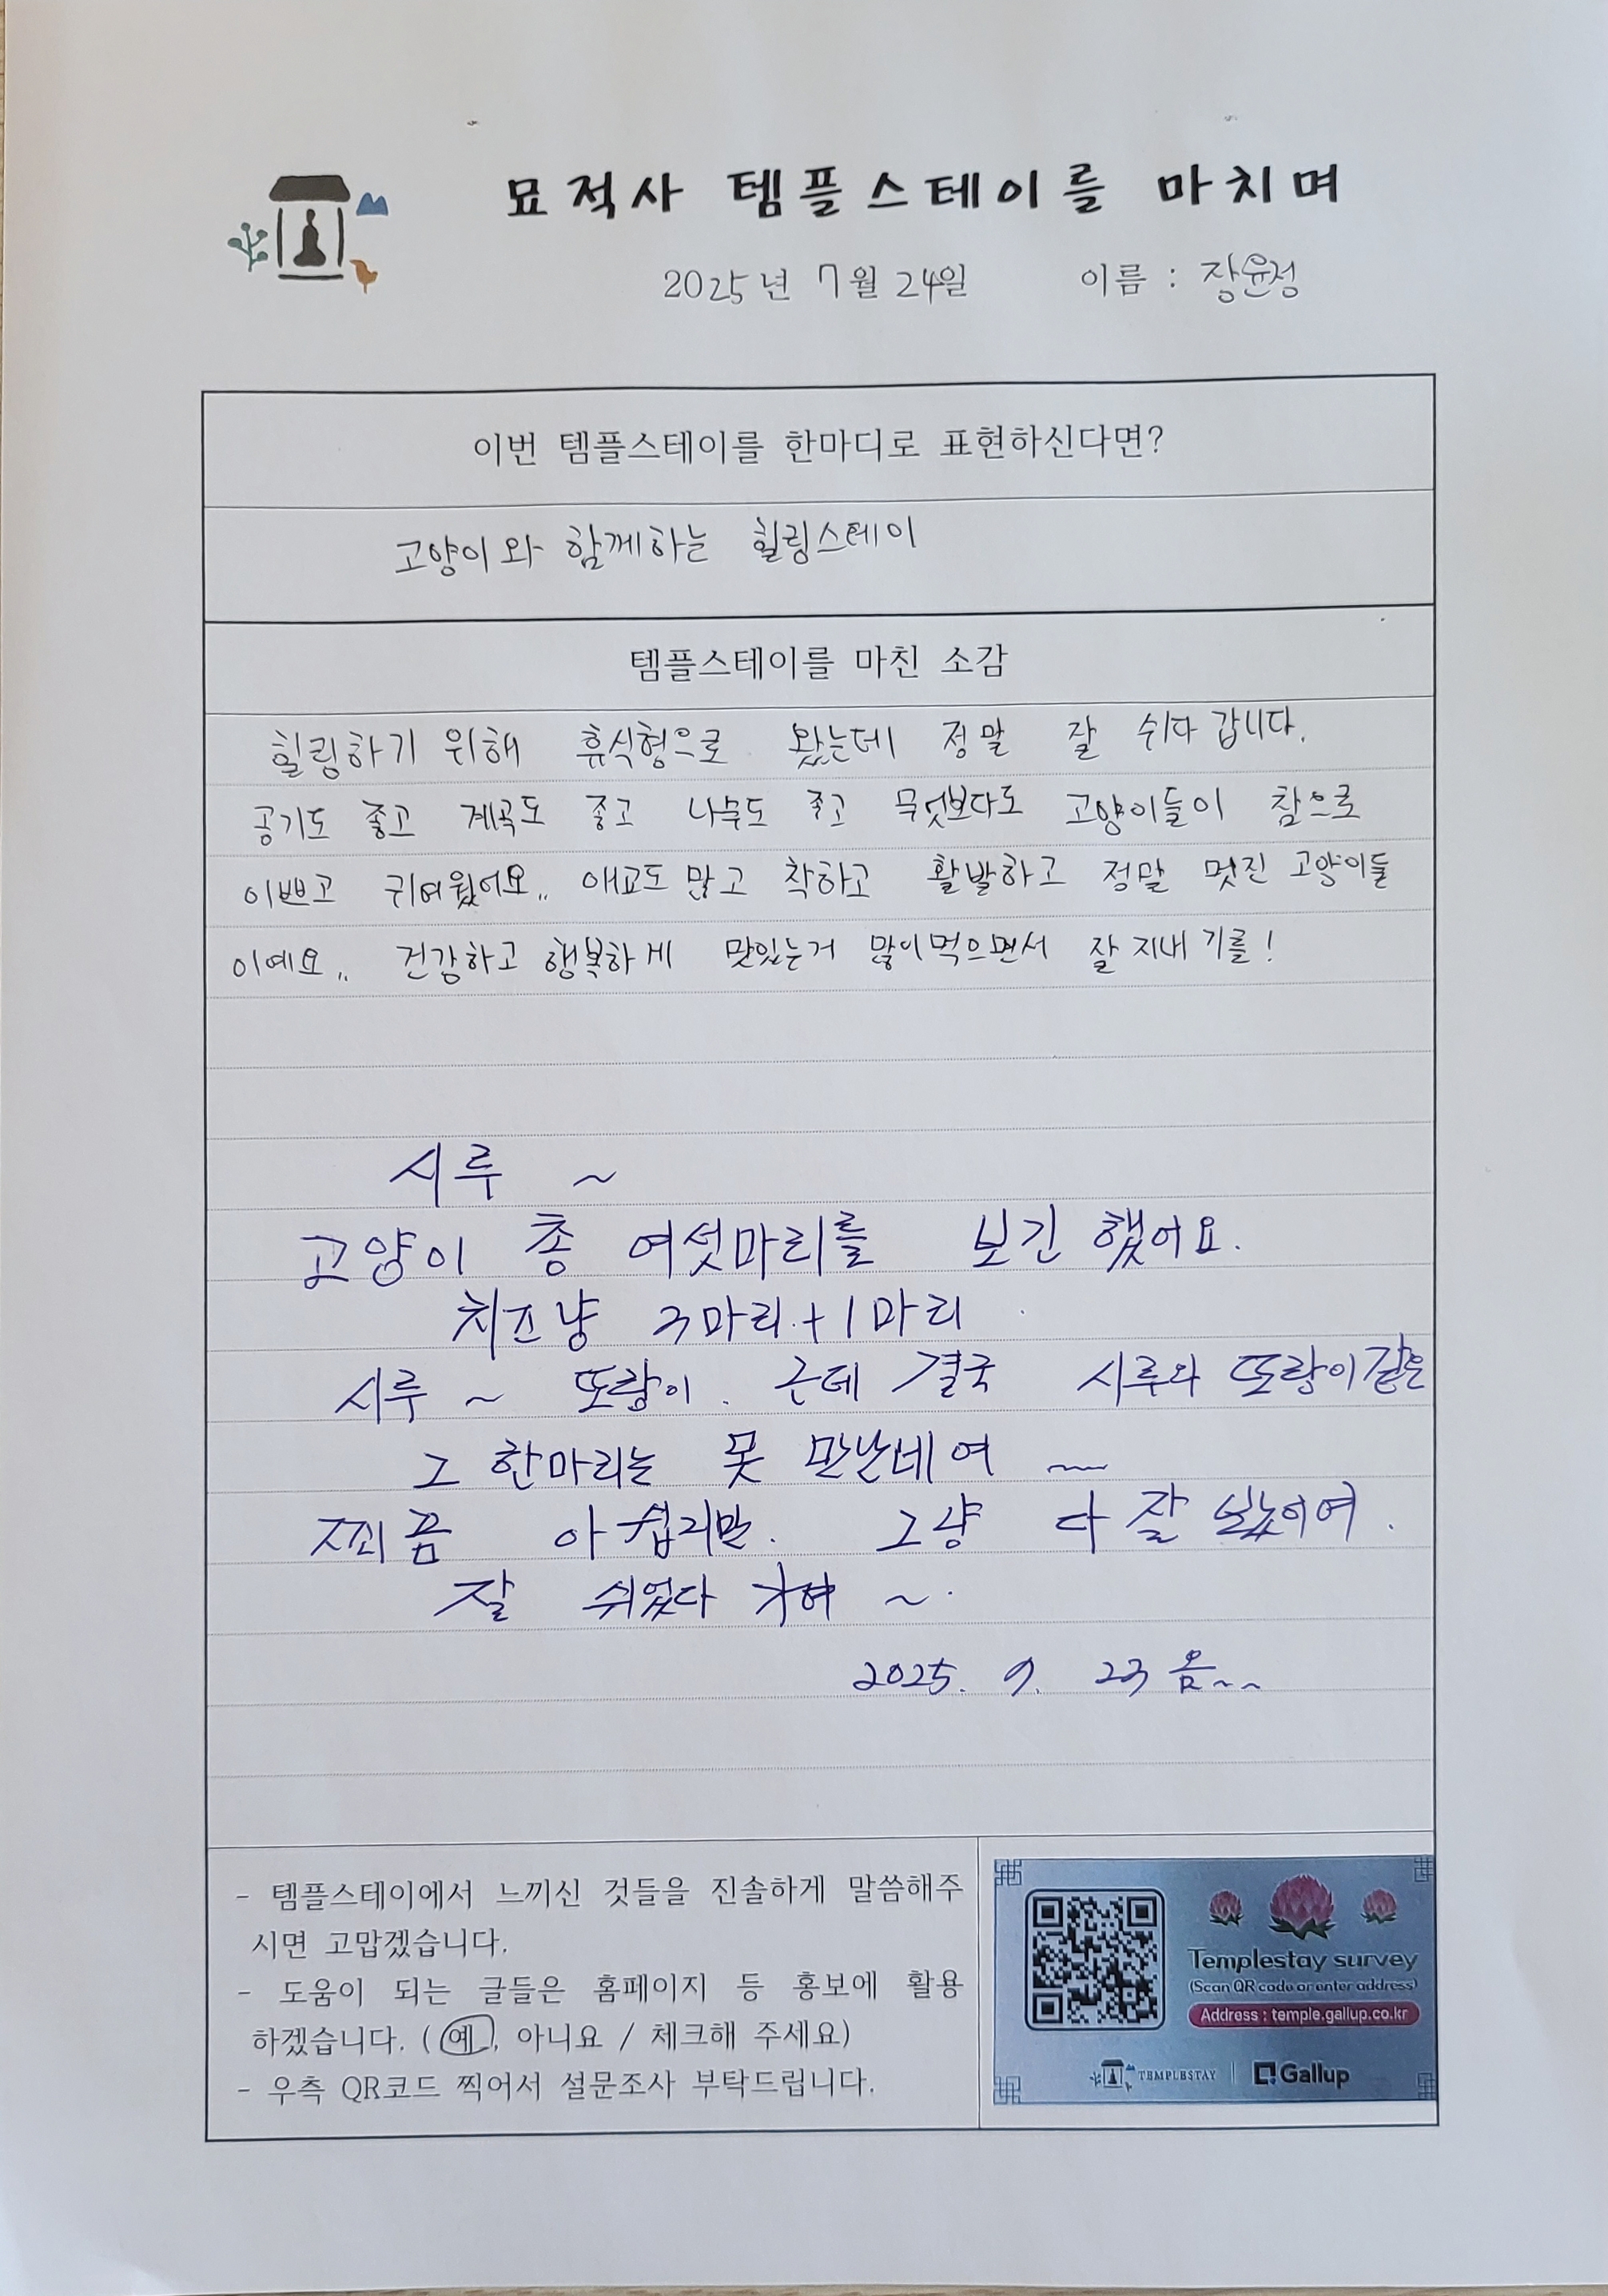 묘적사 템플스테이를 마치며
2025년 7월 24일 이름 : 장윤정
이번 템플스테이를 한마디로 표현하신다면?
고양이와 함께하는 힐링스테이
템플스테이를 마친 소감
힐링하기 위해 휴식형으로 왔는데 정말 잘 쉬다 갑니다.
공기도 좋고 계곡도 좋고 나무도 좋고 무엇보다도 고양이들이 참으로
이쁘고 귀여웠어요.. 애교도 많고 착하고 활발하고 정말 멋진 고양이들
이예요.. 건강하고 행복하게 맛있는거 많이먹으면서 잘 지내기를!
시루 ~
고양이 총 여섯마리를 보긴 했어요.
치즈냥 3마리.+1마리
시루 ~ 또랑이. 근데 결국 시루와 또랑이같은
그 한마리는 못 만났네여 ~
찌끔 아쉽지만. 그냥 다 잘 보았어여.
잘 쉬었다 가여 ~.
2025. 9. 23 옴~~
- 템플스테이에서 느끼신 것들을 진솔하게 말씀해주
시면 고맙겠습니다.
- 도움이 되는 글들은 홈페이지 등 홍보에 활용
하겠습니다. (예, 아니요 / 체크해 주세요)
- 우측 QR코드 찍어서 설문조사 부탁드립니다.
Templestay survey
(Scan QR code or enter address)
Address : temple.gallup.co.kr
TEMPLESTAY Gallup